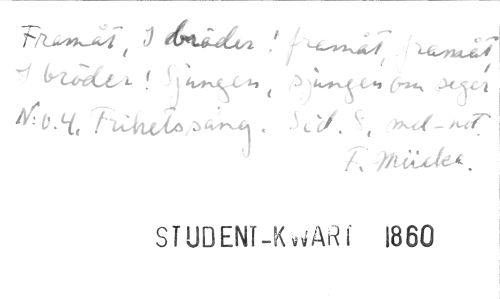 Framåt, I bröder! framåt, framåt
I bröder! Sjungen, sjungen om seger
N:o.4. Frihetssång. Sid. 8, mel-not.
F. Mücke.
STUDENT-KWART 1860